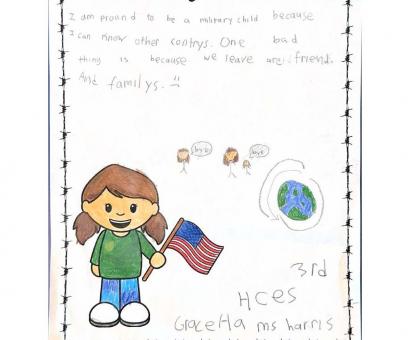 I am pround to be a military child because
I can know other contrys. One bad
thing is because we leave are friend.
And familys. :(
bye
bye
3rd
HCES
Gracella ms harris